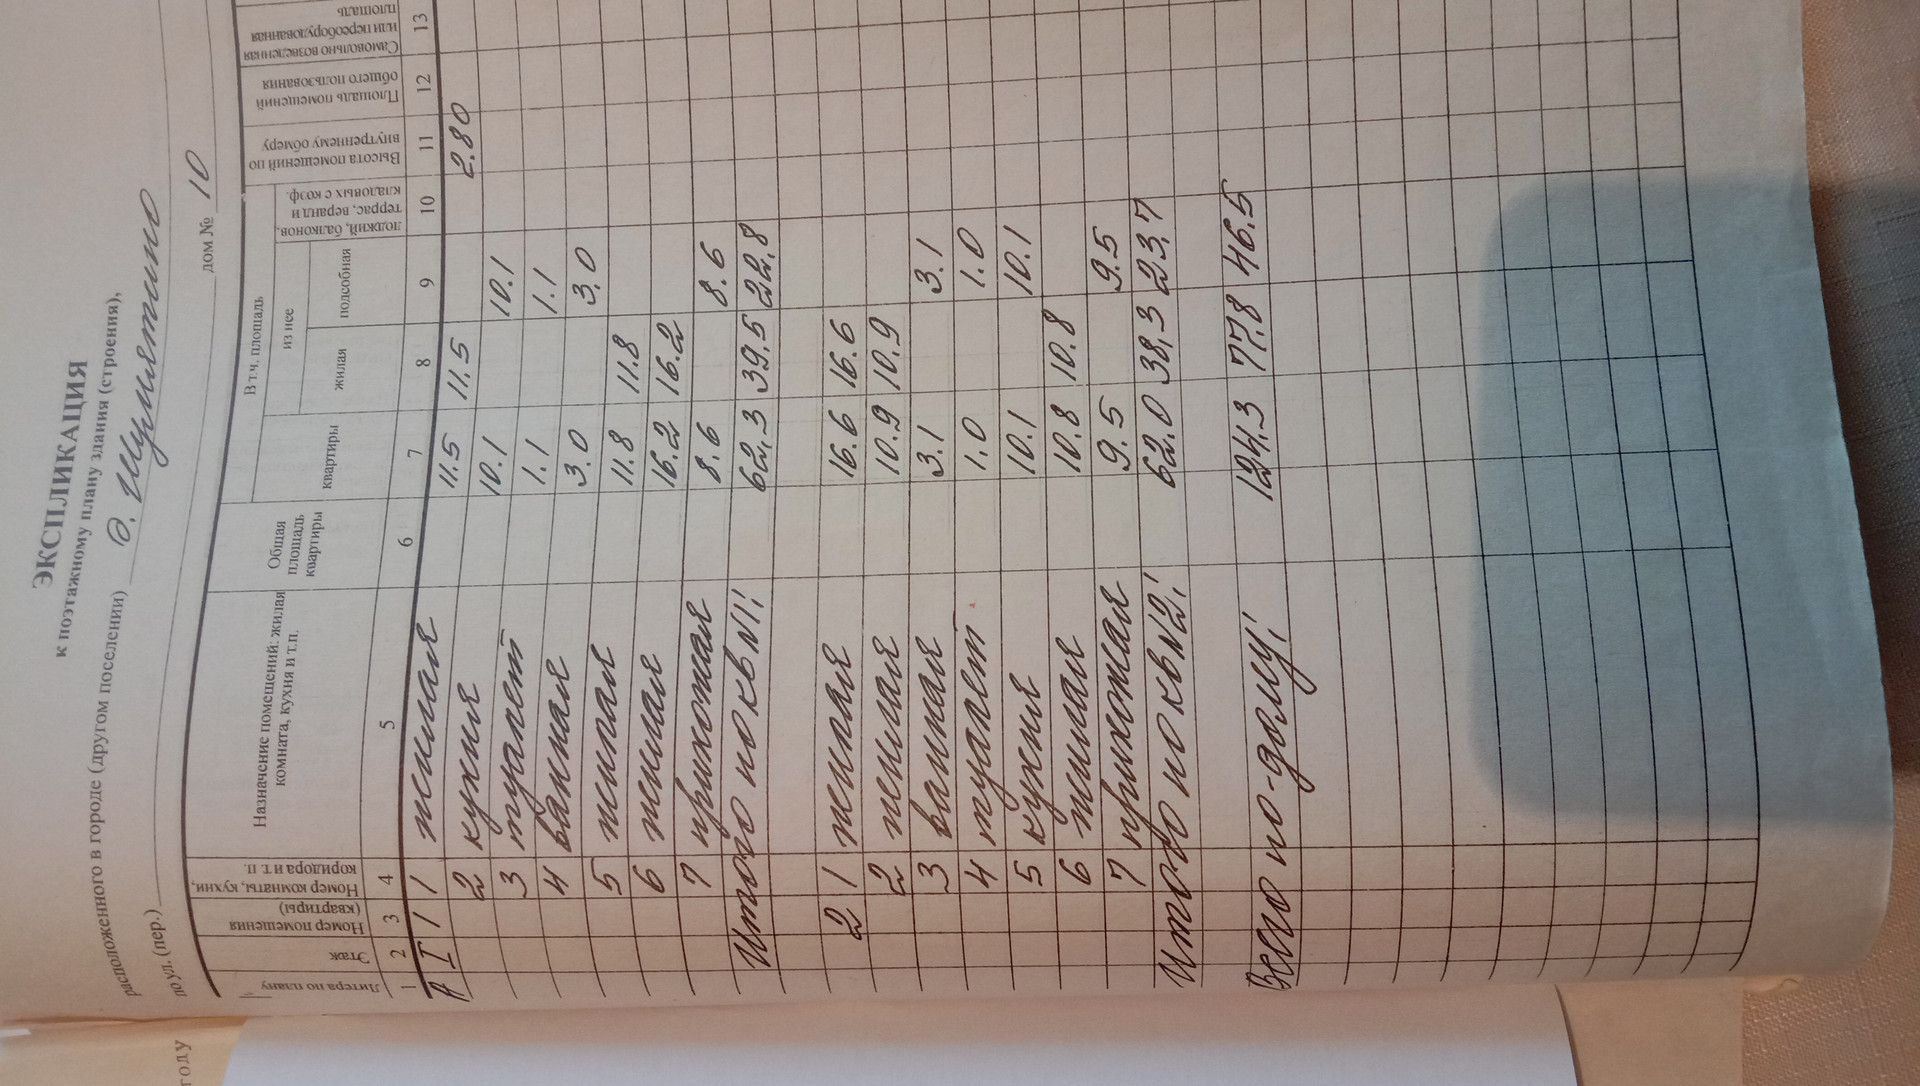 ЭКСПЛИКАЦИЯ
к поэтажному плану здания (строения),
расположенного в городе (другом поселении) д. Шумятино
по ул. (пер.) дом № 10
Литера по плану
Этаж
Номер помещения (квартиры)
Номер комнаты, кухни, коридора и т. п.
Назначение помещений: жилая комната, кухня и т.п.
Общая площадь квартиры
В т.ч. площадь
квартиры
из нее
жилая
подсобная
лоджий, балконов, террас, веранд и кладовых с коэф.
Высота помещений по внутреннему обмеру
Площадь помещений общего пользования
Самовольно возведенная или переоборудованная площадь
1 2 3 4 5 6 7 8 9 10 11 12 13
А I 1 1 жилая 11.5 11.5 2.80
2 кухня 10.1 10.1
3 туалет 1.1 1.1
4 ванная 3.0 3.0
5 жилая 11.8 11.8
6 жилая 16.2 16.2
7 прихожая 8.6 8.6
Итого по кв N1: 62,3 39,5 22,8
2 1 жилая 16.6 16.6
2 жилая 10.9 10.9
3 ванная 3.1 3.1
4 туалет 1.0 1.0
5 кухня 10.1 10.1
6 жилая 10.8 10.8
7 прихожая 9.5 9.5
Итого по кв N2: 62.0 38,3 23,7
Всего по-дому: 124,3 77,8 46,5
году